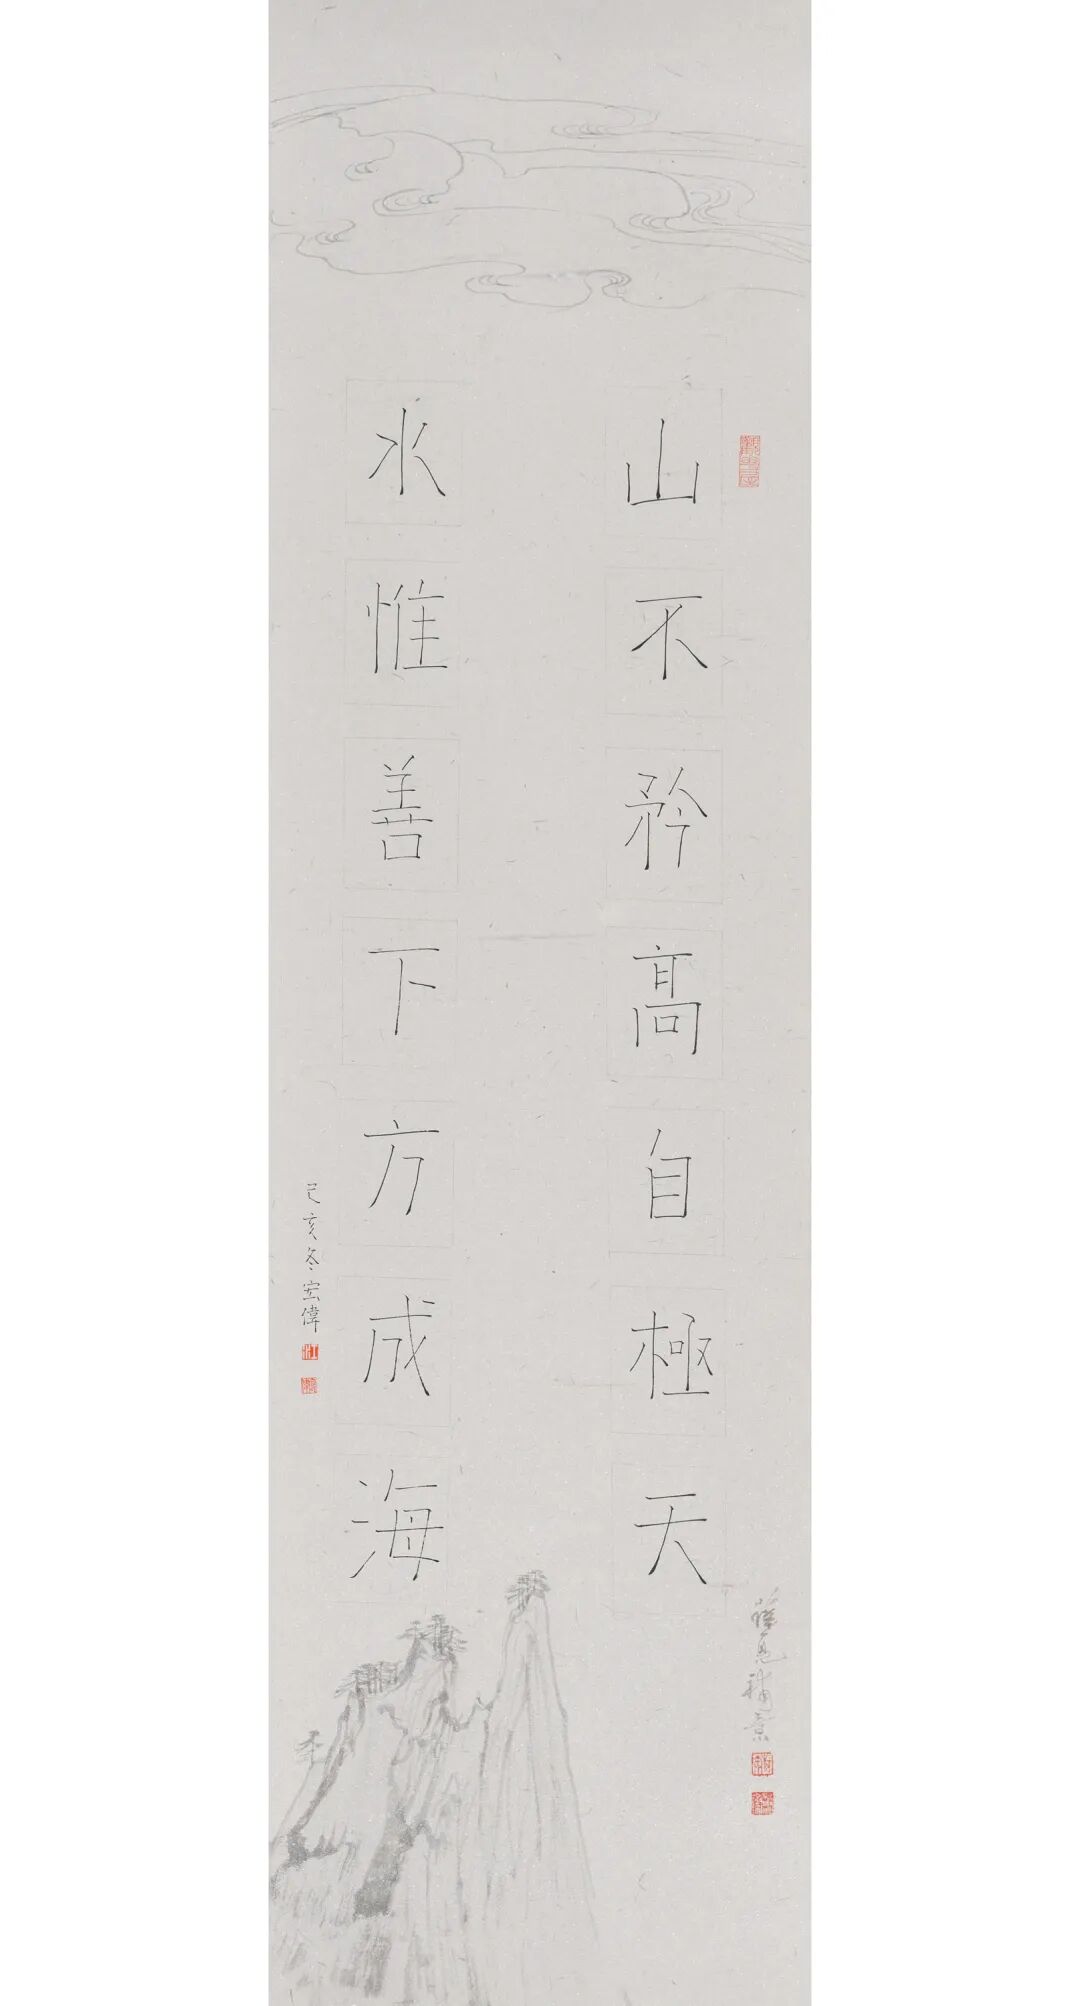 山不矜高自極天
水惟善下方成海
己亥冬宏偉
補景